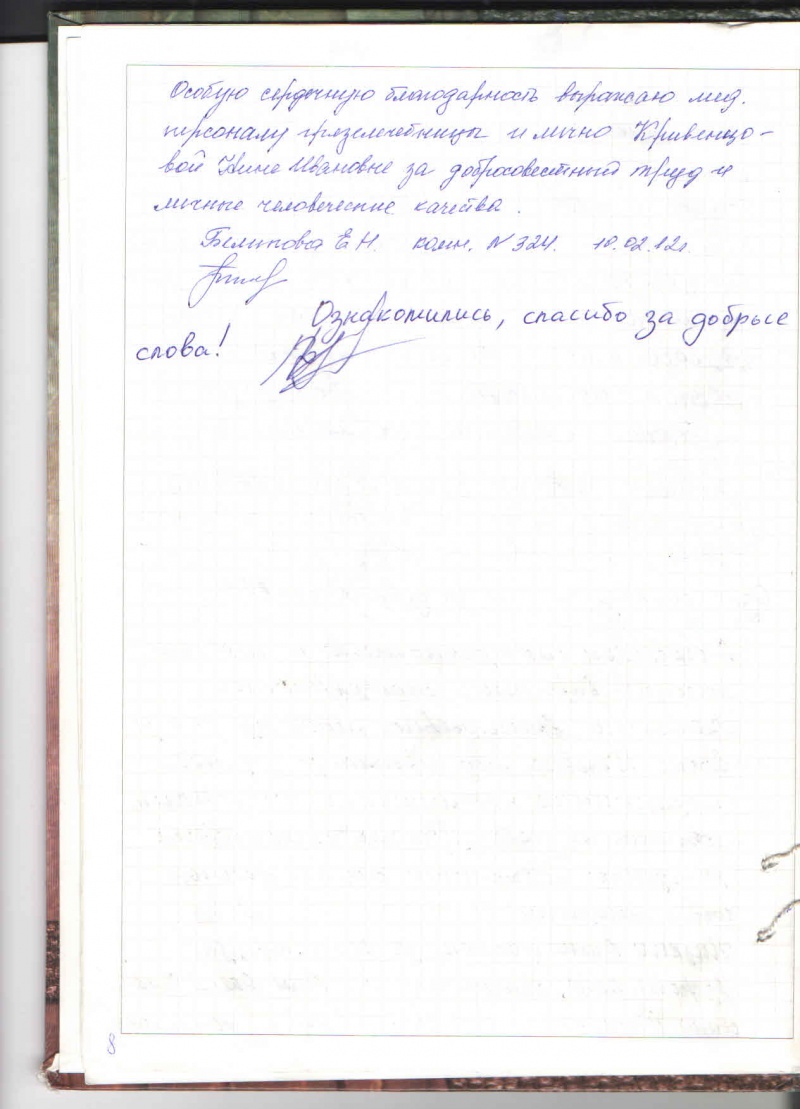 Особую сердечную благодарность выражаю мед.
персоналу грязелечебницы и лично Кривенцо-
вой Нине Ивановне за добросовестный труд и
личные человеческие качества.
Е.Н. комн. № 324. 10.02.12г.
Ознакомились, спасибо за добрые
слова!
8